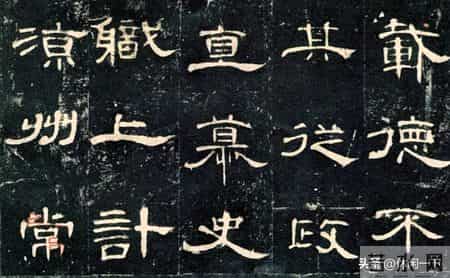 載德不
其從政
直慕史
職上計
涼州常
头条@休闲一下